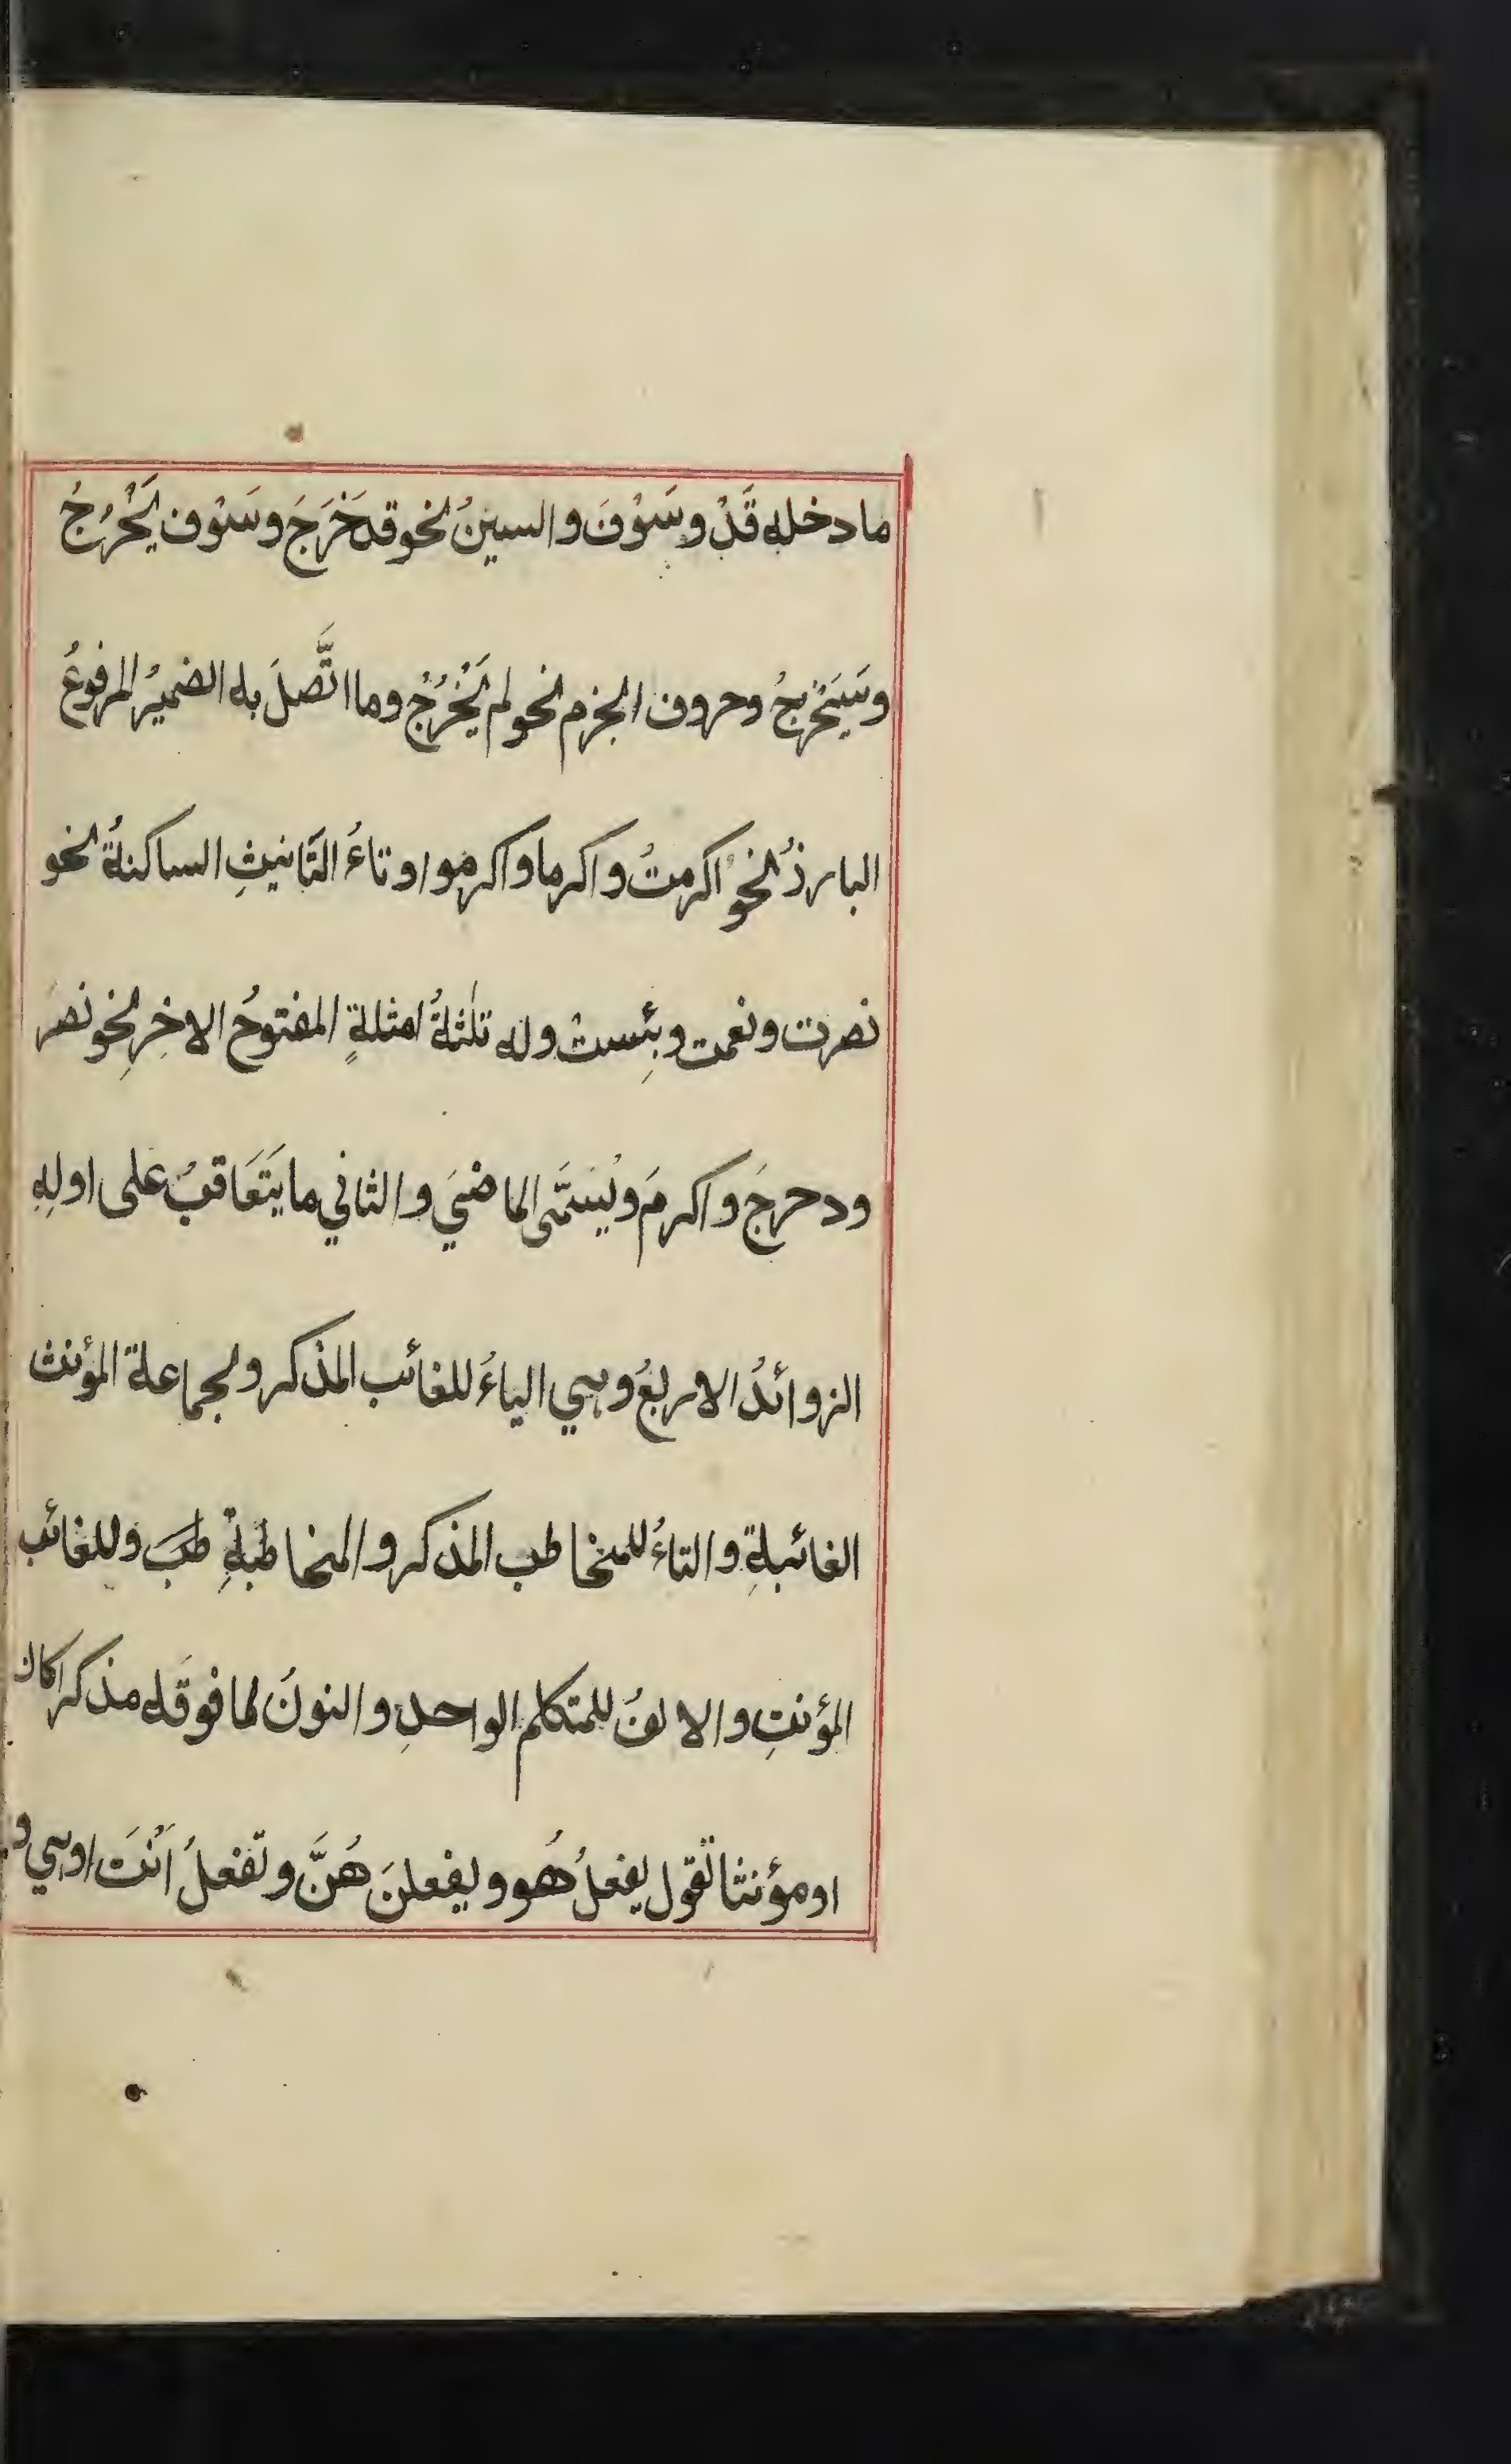 ما دخله قَدْ وسَوْفَ والسينُ نحو قد خَرَجَ وسَوْف يَخْرُجُ
وسَيَخْرجُ وحروف الجزم نحو لم يَخْرُجْ وما اتَّصلَ به الضميرُ المرفوعُ
البارزُ نحوُ اكرمتُ واكرما واكرموا وتاءُ التَّانيثِ الساكنةُ نحو
نصرت ونعمت وبِئست وله ثلثةُ امثلةٍ المفتوحُ الاخِرِ نحو نصَر
ودحرجَ واكرمَ ويُسَمَّى الماضيَ والثاني ما يَتَعَاقبُ على اولِهِ
الزوائدُ الاربعُ وهي الياءُ للغائب المذكر ولجماعة المؤنث
الغائبةِ والتاءُ للمخاطب المذكر والمخاطبةِ طبَ وللغائب
المؤنثِ والالفُ للمتكلم الواحدِ والنونُ لما فوقَه مذكرا كان
او مؤنثا تقول يفعلُ هُو ويفعلنَ هُنَّ وتفعلُ اَنْتَ اوهي و